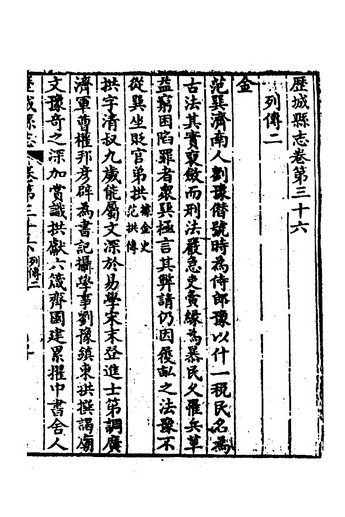 歷城縣志卷第三十六
列傳二
金
范巽濟南人劉豫僭號時為侍郎豫以什一稅民名為
古法其實裒斂而刑法嚴急吏夤緣為暴民久罹兵革
益窮困陷罪者衆巽極言其弊請仍因履畝之法豫不
從巽坐貶官弟拱 據金史范拱傳
拱字清叔九歲能屬文深於易學宋末登進士第調廣
濟軍曹權邦彥辟為書記攝學事劉豫鎮東拱撰謁廟
文豫奇之深加賞識拱獻六箴齊國建累擢中書舍人
歷城縣志 卷第三十六 列傳二